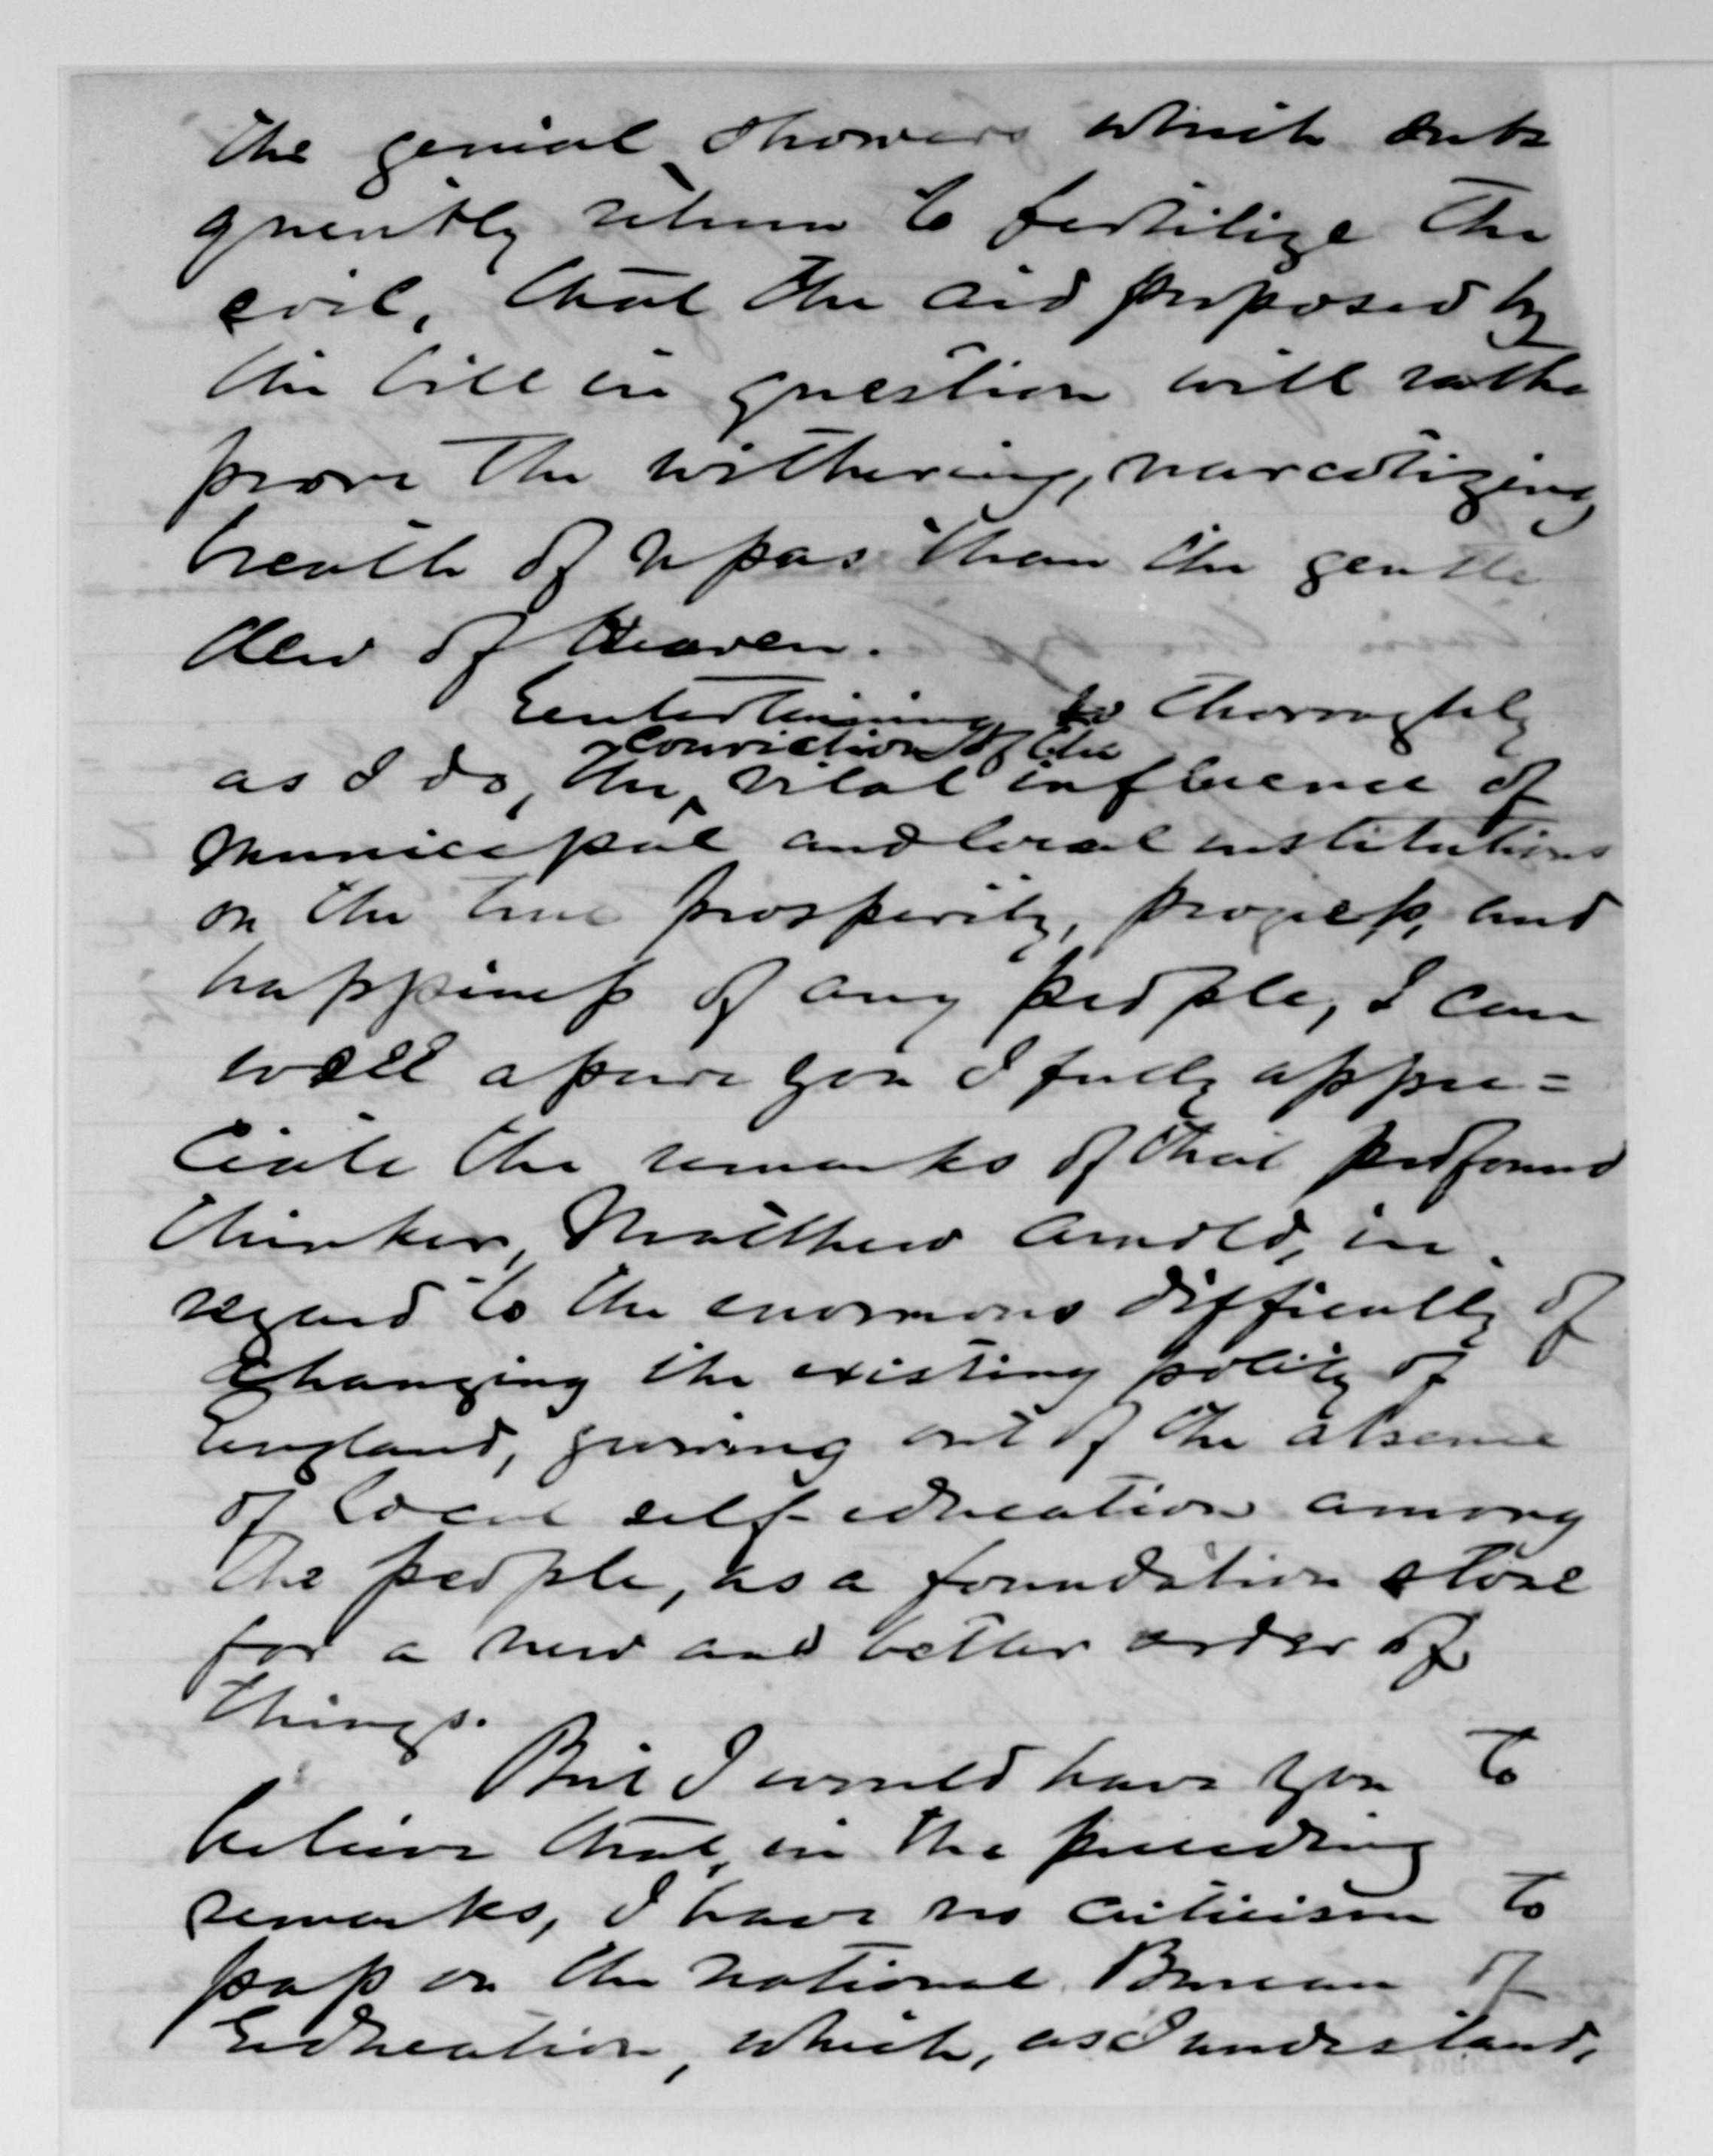 the genial showers which subse
quently return to fertilize the
soil, that the aid proposed by
the bill in question will rathe
prove the withering, narcotizing
breath of upas than the gentle
dew of Heaven.
Entertaining so thoroughly
conviction of the
as I do, the vital influence of
municipal and local institutions
on the true prosperity, progress, and
happiness of any people, I can
well assure you I fully appre=
ciate the remarks of that profound
thinker, Matthew Arnold, in
regard to the enormous difficulty of
changing the existing polity of
England, growing out of the absence
of local self-education among
the people, as a foundation stone
for a new and better order of
things.
But I would have you to
believe that, in the preceding
remarks, I have no criticism to
pass on the national Bureau of
Education, which, as I understand,